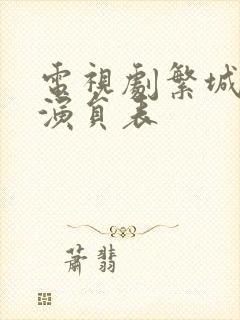 電視劇繁城
演員表
蕭翡